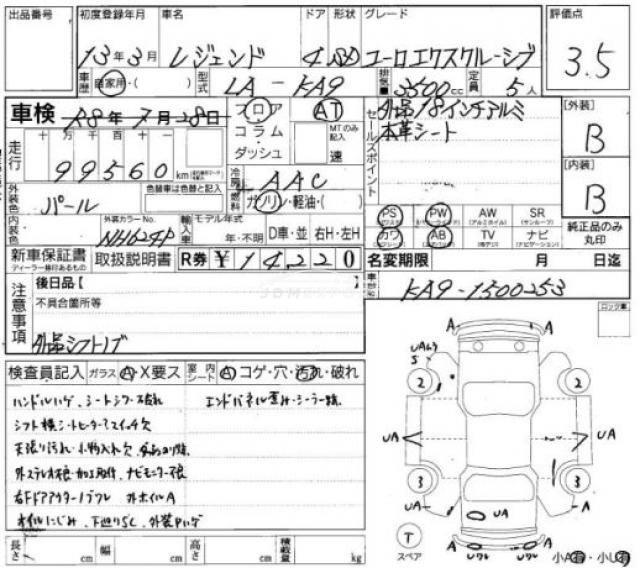 出品番号 初度登録年月 車名 ドア 形状 グレード 評価点
13年3月 レジェンド 4.SD ユーロエクスクルーシブ 3.5
車歴 自家用・( ) 型式 LA-KA9 排気量 3500cc 定員 5人
車検 R8年7月28日 フロア AT 外品18インチアルミ [外装]
走行 十万 万 千 百 十 コラム・ MTのみ記入 セールスポイント 本革シート B
99560km ダッシュ 速 [内装]
外装色 パール 色替車は色替と記入 冷房 AAC B
燃料 ガソリン・軽油・( )
内装色 外装カラーNo. NH624P 輸入車 モデル年式 年・不明 D車・並 右H・左H
PS PW AW SR 純正品のみ丸印
(パワステ) (アルミホイル) (サンルーフ)
カワ AB TV ナビ
(エアバッグ) (ナビゲーション)
新車保証書 取扱説明書 R券 ¥14,220 名変期限 月 日迄
ディーラー捺印あるもの
注意事項 後日品【 】 車台No. KA9-1500253
不具合箇所等
外品シフトノブ
ロック車
検査員記入 ガラス A・X要ス 室内シート A コゲ・穴・汚れ・破れ
ハンドルハゲ、シートシワ・スレ エンドパネル歪み・シーラー
シフト横シートヒータースイッチ欠
天張り汚れ・小物入れ欠
外ステレオ不良・加工取付、ナビモニター不良
右Fドアアウターノブワレ 外ホイルA
オイルにじみ、下廻りSC、外装Pハゲ
長さ cm 幅 cm 高さ cm 積載量 kg
A A
UAムラ
S
2 2
UA UA
3 3
UA UA
UA
T
スペア
A Uワレ Uワレ A
小A有・小U有